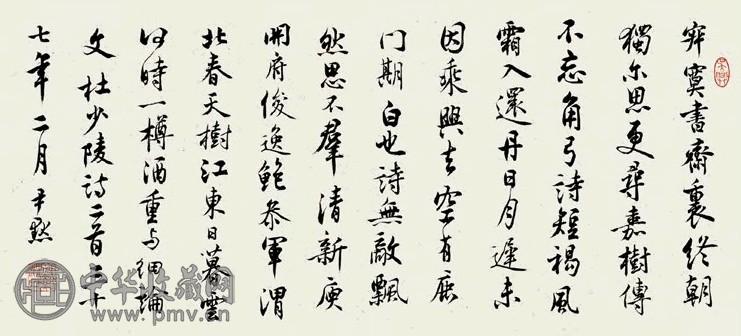 寂寞書齋裏終朝
獨尔思更尋嘉樹傳
不忘角弓詩短褐風
霜入還丹日月遲未
因乘興去空有鹿
門期白也詩無敵飄
然思不羣清新庾
開府俊逸鮑參軍渭
北春天樹江東日暮雲
何時一樽酒重与細論
文杜少陵詩二首三十
七年二月尹默
中华收藏网
www.pmv.cn